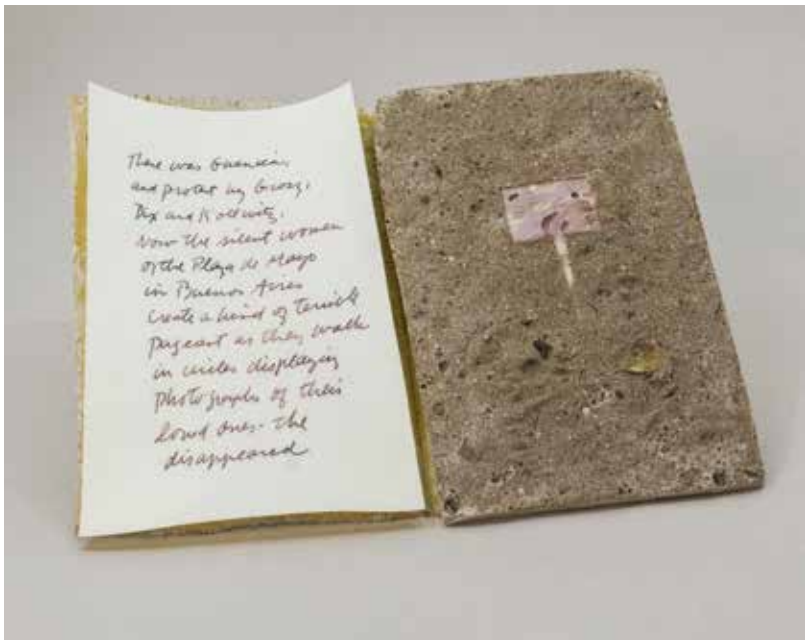 There was Guernica,
and protest by Grosz,
Dix and Kollwitz.
Now the silent women
of the Plaza de Mayo
in Buenos Aires
create a kind of terrible
pageant as they walk
in circles displaying
photographs of their
loved ones - the
disappeared